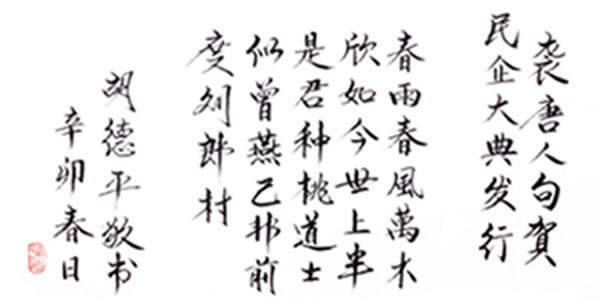 袭唐人句贺
民企大典发行
春雨春風萬木
欣如今世上半
是君种桃道士
似曾燕已非前
度刘郎村
胡德平敬书
辛卯春日